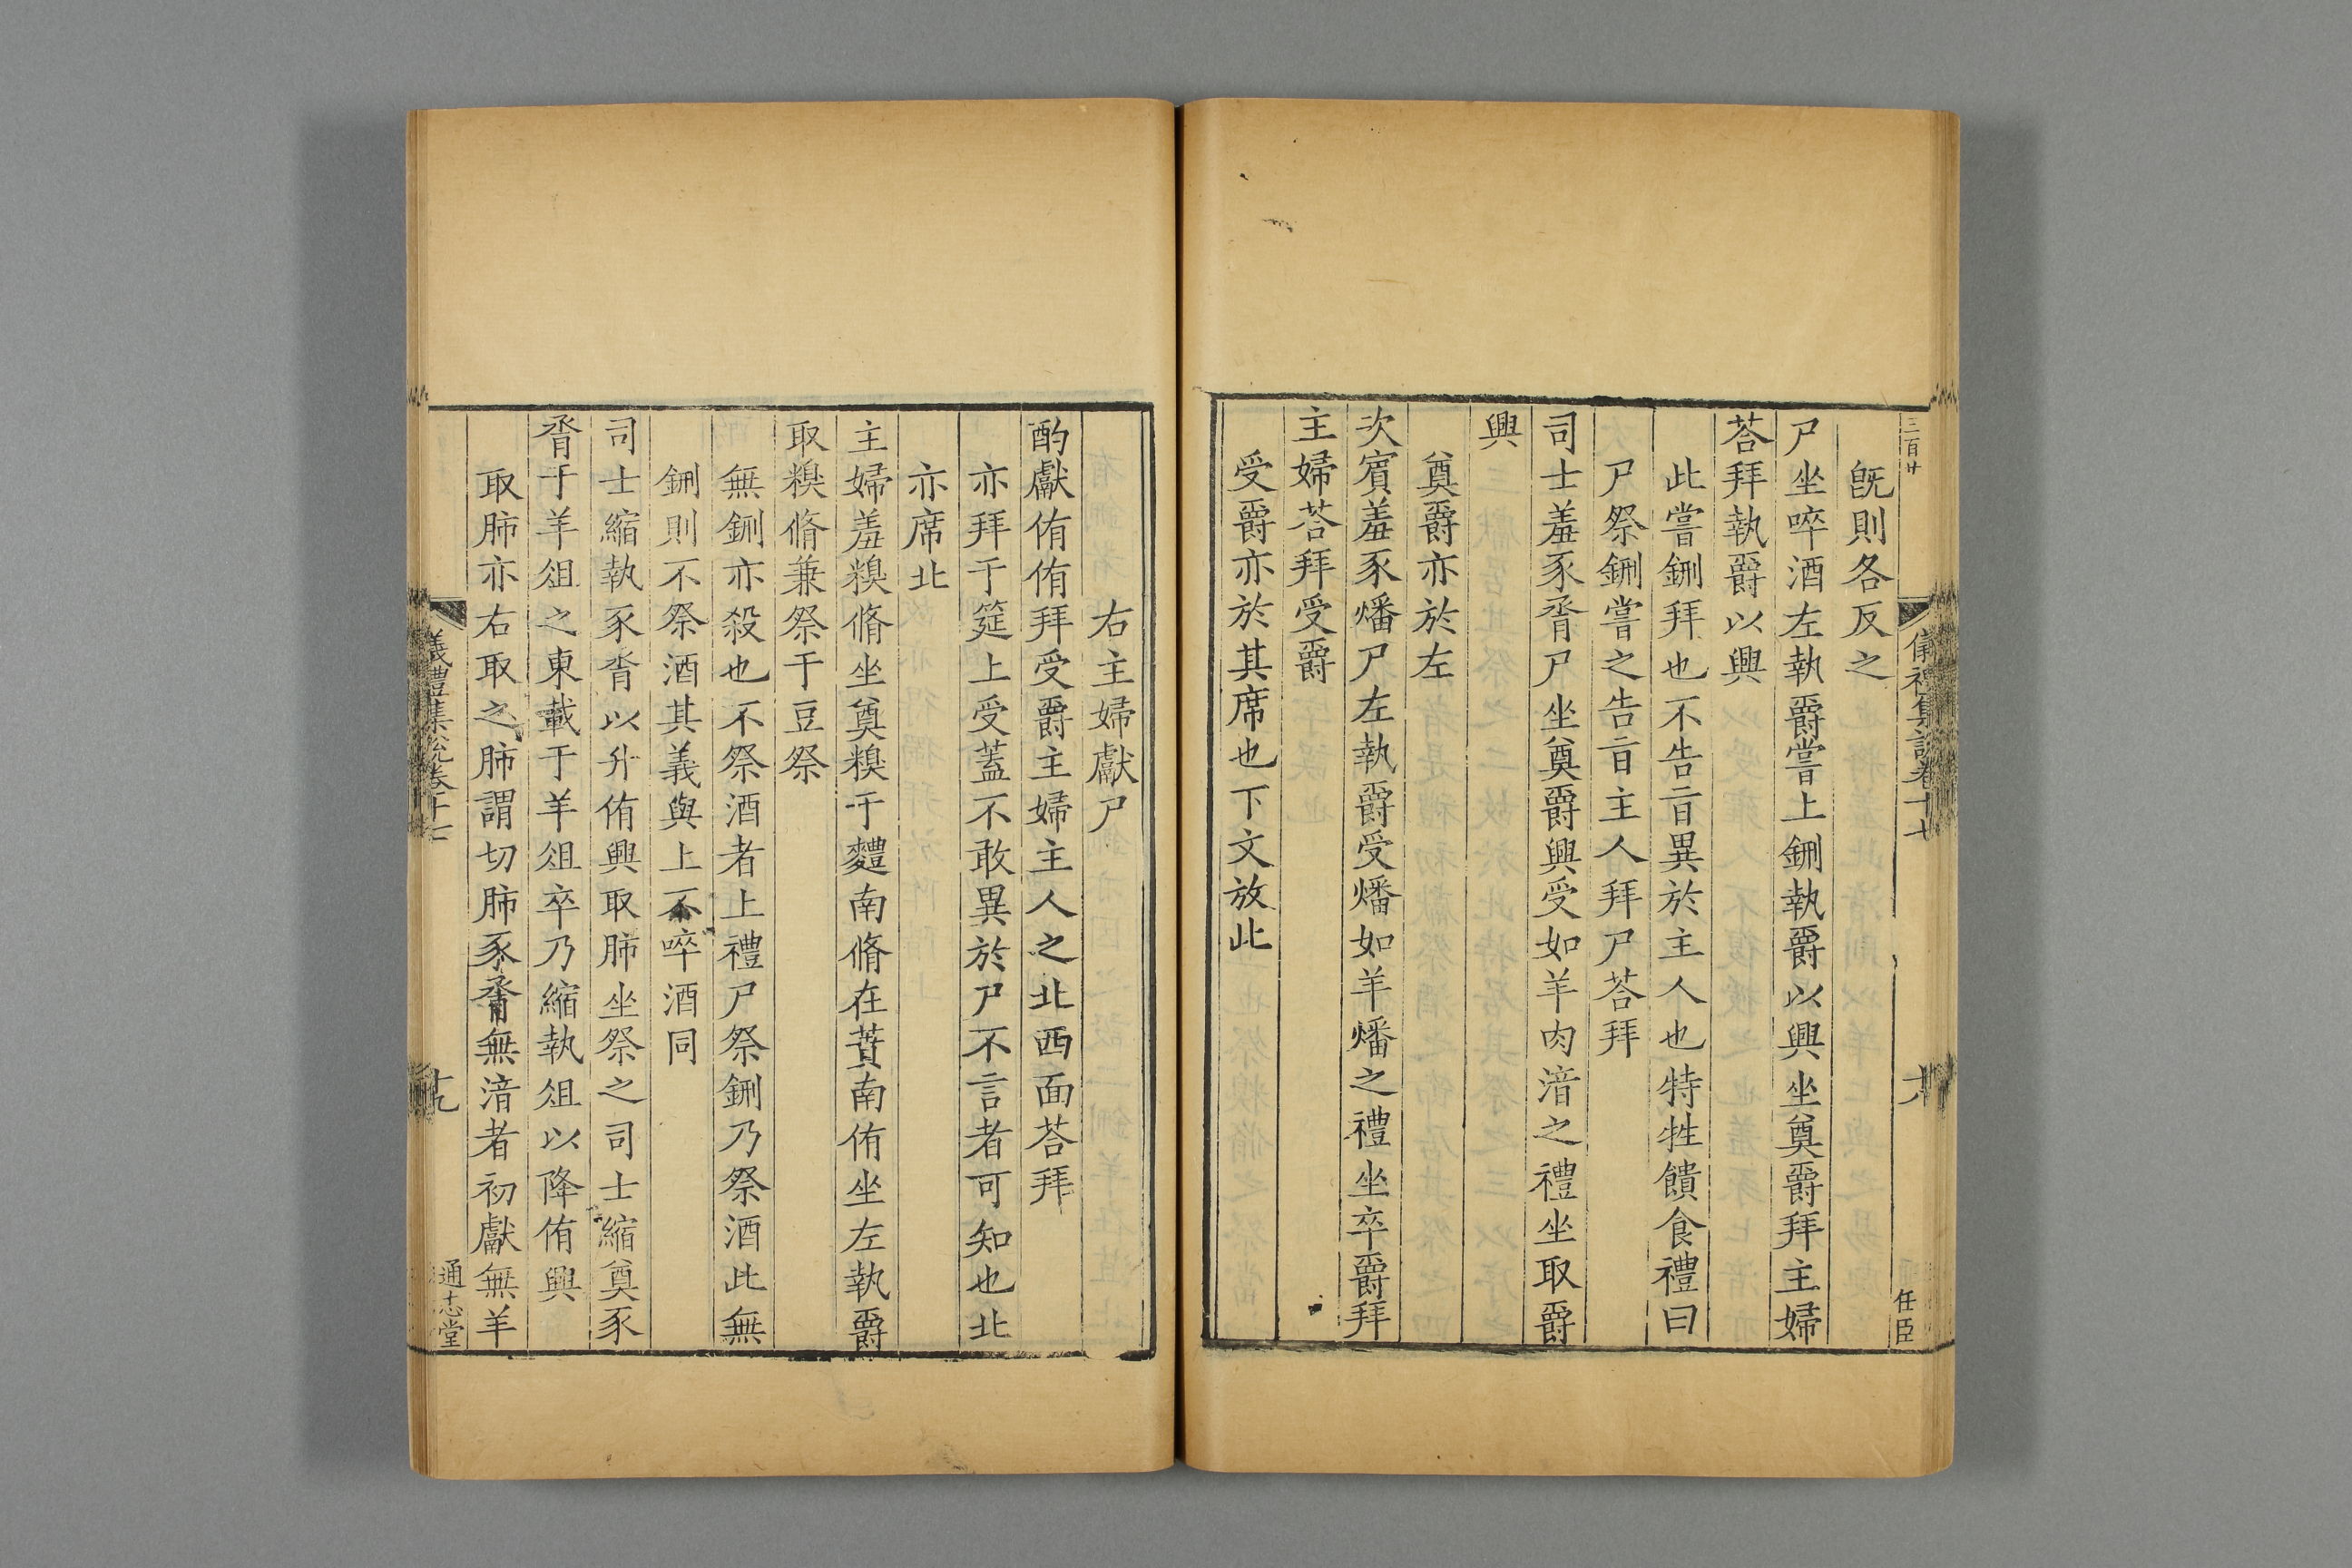 三百廿
儀禮集說卷十七
十八
任臣
旣則各反之
尸坐啐酒左執爵嘗上鉶執爵以興坐奠爵拜主婦
荅拜執爵以興
此嘗鉶拜也不告旨異於主人也特牲饋食禮曰
尸祭鉶嘗之告旨主人拜尸荅拜
司士羞豕脀尸坐奠爵興受如羊肉湆之禮坐取爵
興
奠爵亦於左
次賓羞豕燔尸左執爵受燔如羊燔之禮坐卒爵拜
主婦荅拜受爵
受爵亦於其席也下文放此
右主婦獻尸
酌獻侑侑拜受爵主婦主人之北西面荅拜
亦拜于筵上受蓋不敢異於尸不言者可知也北
亦席北
主婦羞糗脩坐奠糗于麷南脩在蕡南侑坐左執爵
取糗脩兼祭于豆祭
無鉶亦殺也不祭酒者上禮尸祭鉶乃祭酒此無
鉶則不祭酒其義與上不啐酒同
司士縮執豕脀以升侑興取肺坐祭之司士縮奠豕
脀于羊俎之東載于羊俎卒乃縮執俎以降侑興
取肺亦右取之肺謂切肺豕脀無湆者初獻無羊
儀禮集說卷十七
十九
通志堂